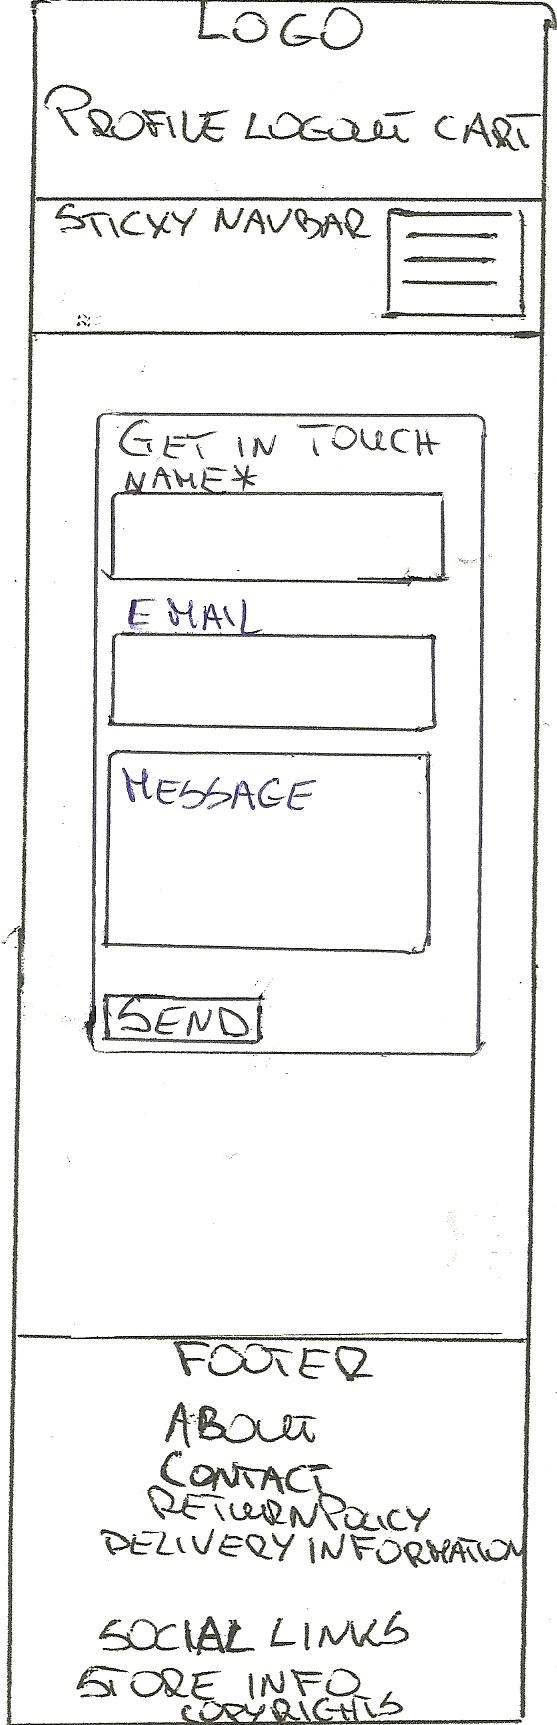 LOGO
PROFILE LOGOUT CART
STICKY NAVBAR
GET IN TOUCH
NAME*
EMAIL
MESSAGE
SEND
FOOTER
ABOUT
CONTACT
RETURN POLICY
DELIVERY INFORMATION
SOCIAL LINKS
STORE INFO
COPYRIGHTS